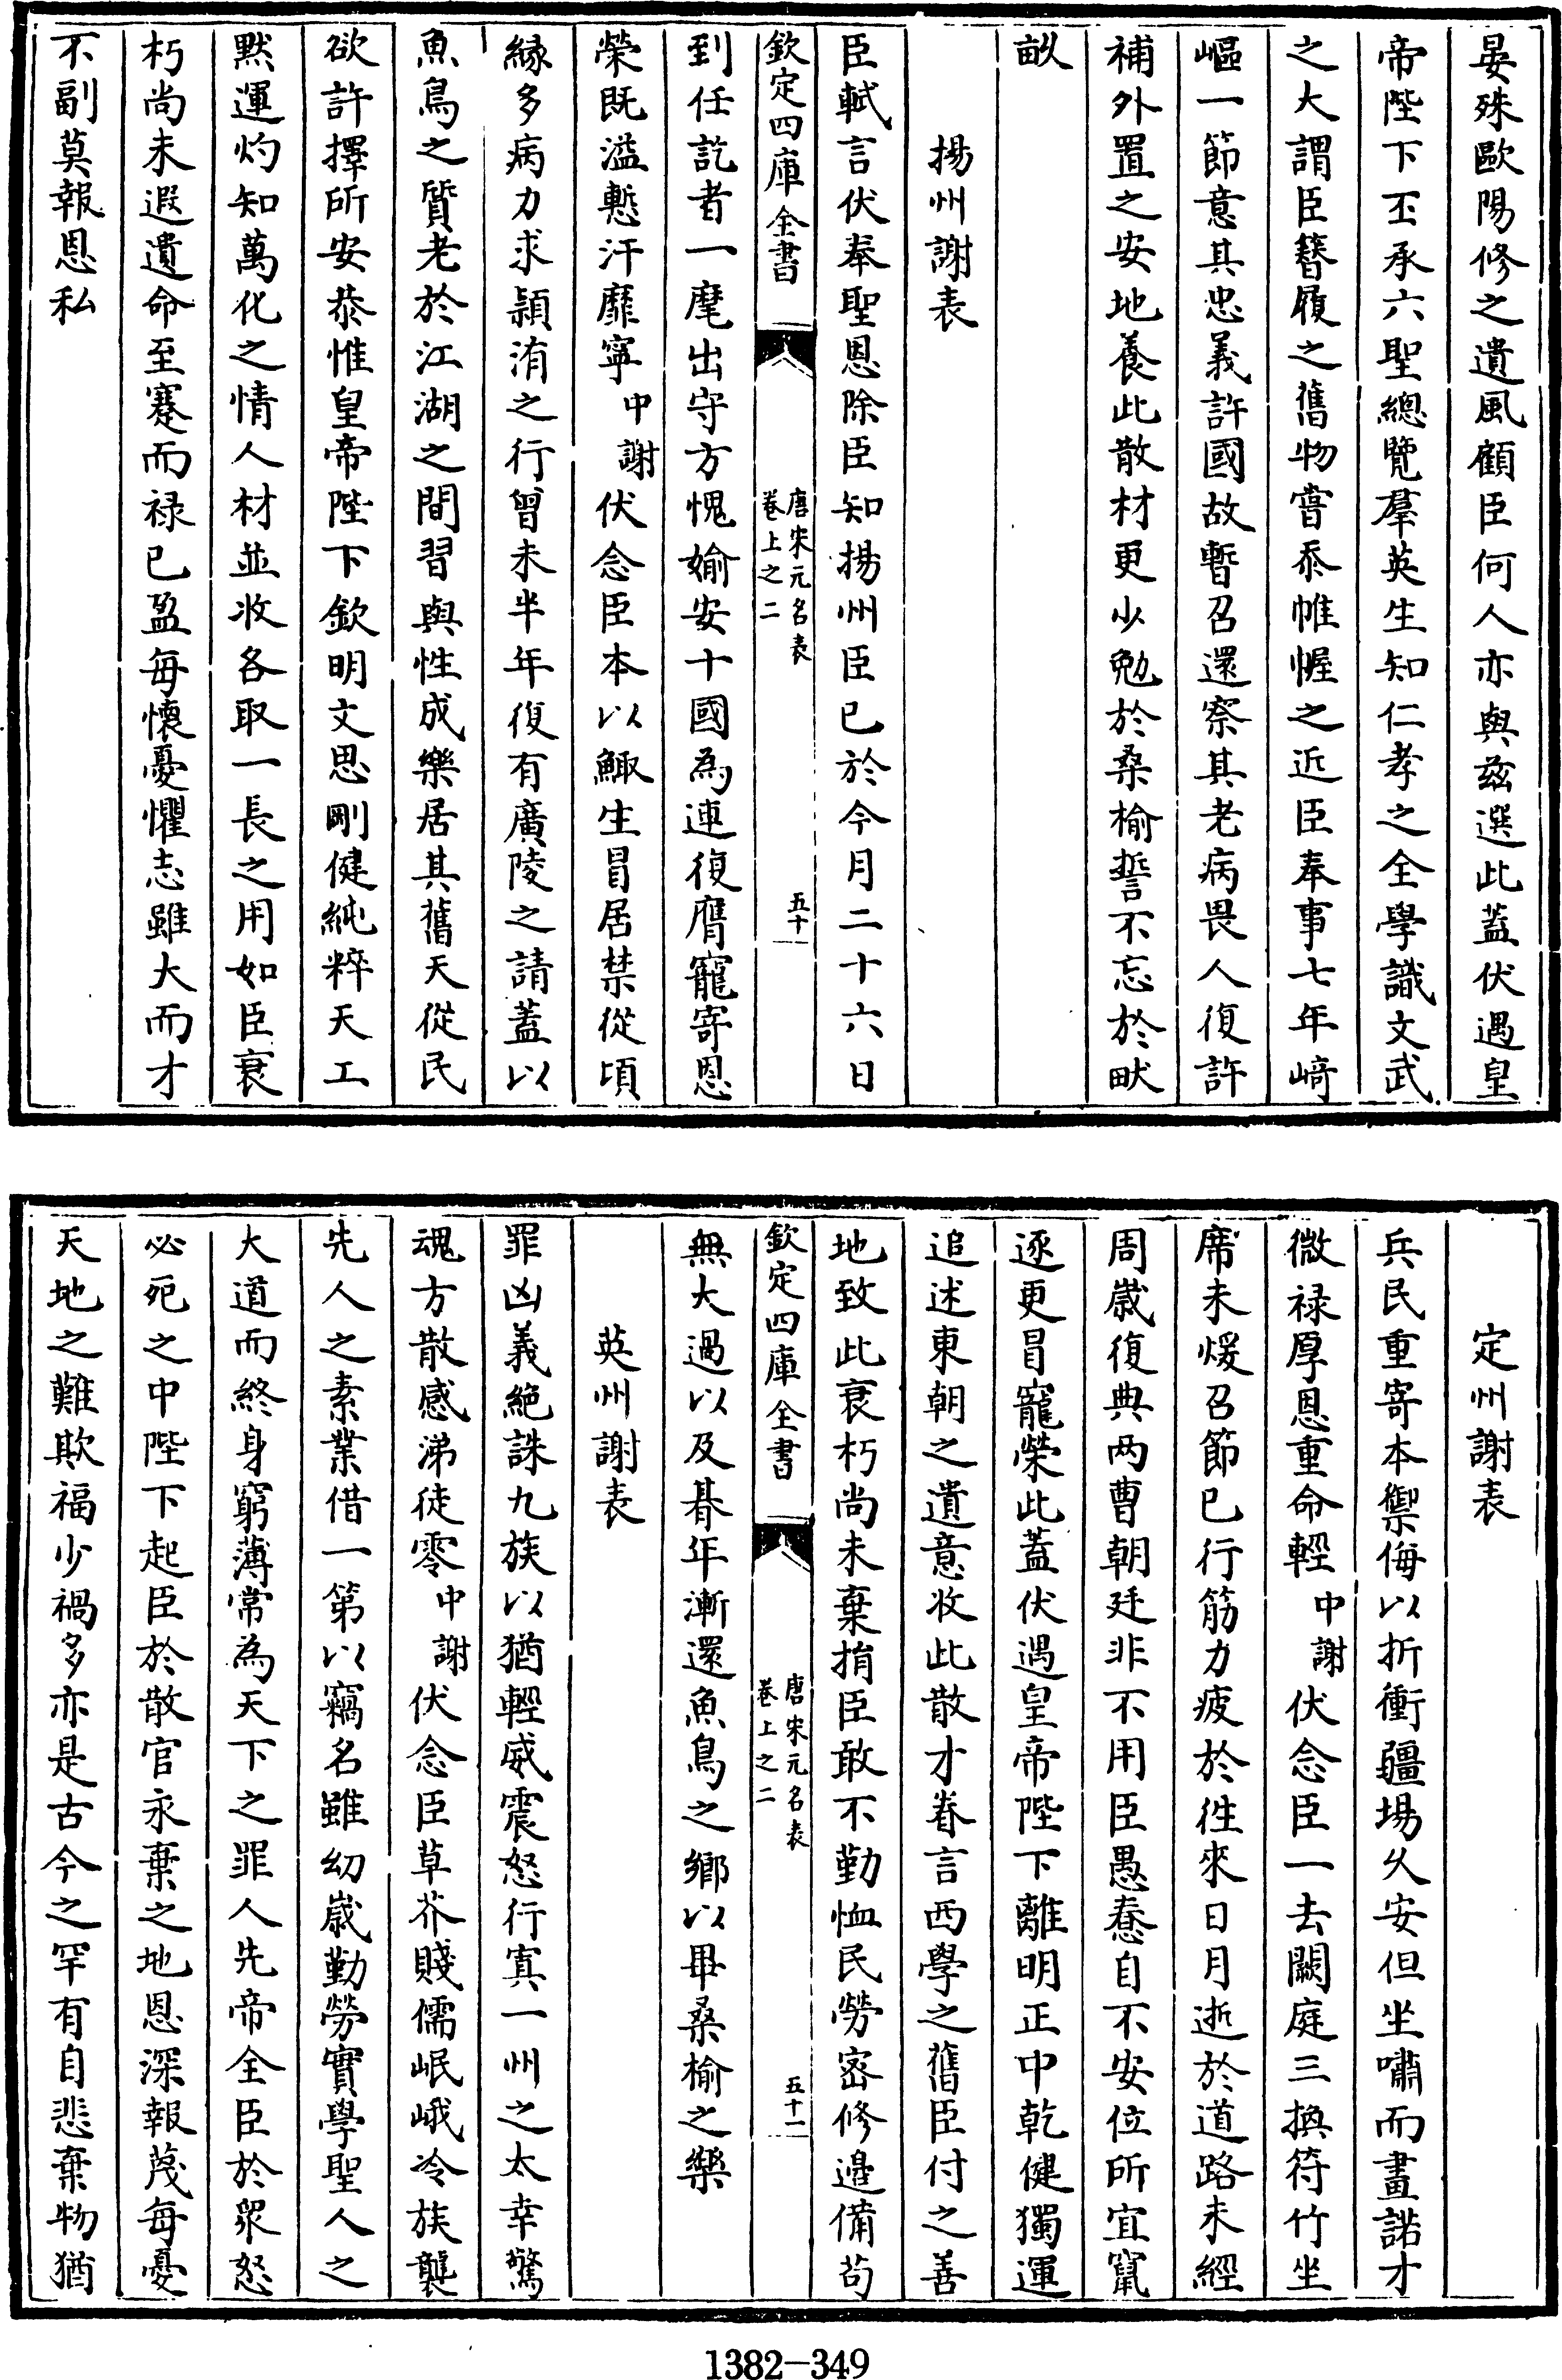 晏殊歐陽修之遺風顧臣何人亦與兹選此蓋伏遇皇
帝陛下丕承六聖總覽羣英生知仁孝之全學識文武
之大謂臣簪履之舊物嘗忝帷幄之近臣奉事七年﨑
嶇一節意其忠義許國故暫召還察其老病畏人復許
補外置之安地養此散材更少勉於桑榆誓不忘於畎
畝
揚州謝表
臣軾言伏奉聖恩除臣知揚州臣已於今月二十六日
欽定四庫全書
唐宋元名表
卷上之二
五十
到任訖者一麾出守方愧媮安十國為連復膺寵寄恩
榮既溢慙汗靡寧中謝伏念臣本以鯫生冒居禁從頃
縁多病力求潁洧之行曾未半年復有廣陵之請蓋以
魚鳥之質老於江湖之間習與性成樂居其舊天從民
欲許擇所安恭惟皇帝陛下欽明文思剛健純粹天工
黙運灼知萬化之情人材並收各取一長之用如臣衰
朽尚未遐遺命至蹇而禄已盈每懷憂懼志雖大而才
不副莫報恩私
定州謝表
兵民重寄本禦侮以折衝疆埸久安但坐嘯而畫諾才
微禄厚恩重命輕中謝伏念臣一去闕庭三換符竹坐
席未煖召節已行筋力疲於徃來日月逝於道路未經
周嵗復典两曹朝廷非不用臣愚惷自不安位所宜竄
逐更冒寵榮此蓋伏遇皇帝陛下離明正中乾健獨運
追述東朝之遺意收此散才眷言西學之舊臣付之善
地致此衰朽尚未棄捐臣敢不勤恤民勞密修邊備苟
欽定四庫全書
唐宋元名表
卷上之二
五十一
無大過以及朞年漸還魚鳥之鄉以畢桑榆之樂
英州謝表
罪凶義絶誅九族以猶輕威震怒行寘一州之太幸驚
魂方散感涕徒零中謝伏念臣草芥賤儒岷峨冷族襲
先人之素業借一第以竊名雖幼嵗勤勞實學聖人之
大道而終身窮薄常為天下之罪人先帝全臣於衆怒
必死之中陛下起臣於散官永棄之地恩深報蔑每憂
天地之難欺福少禍多亦是古今之罕有自悲棄物猶
1382-349